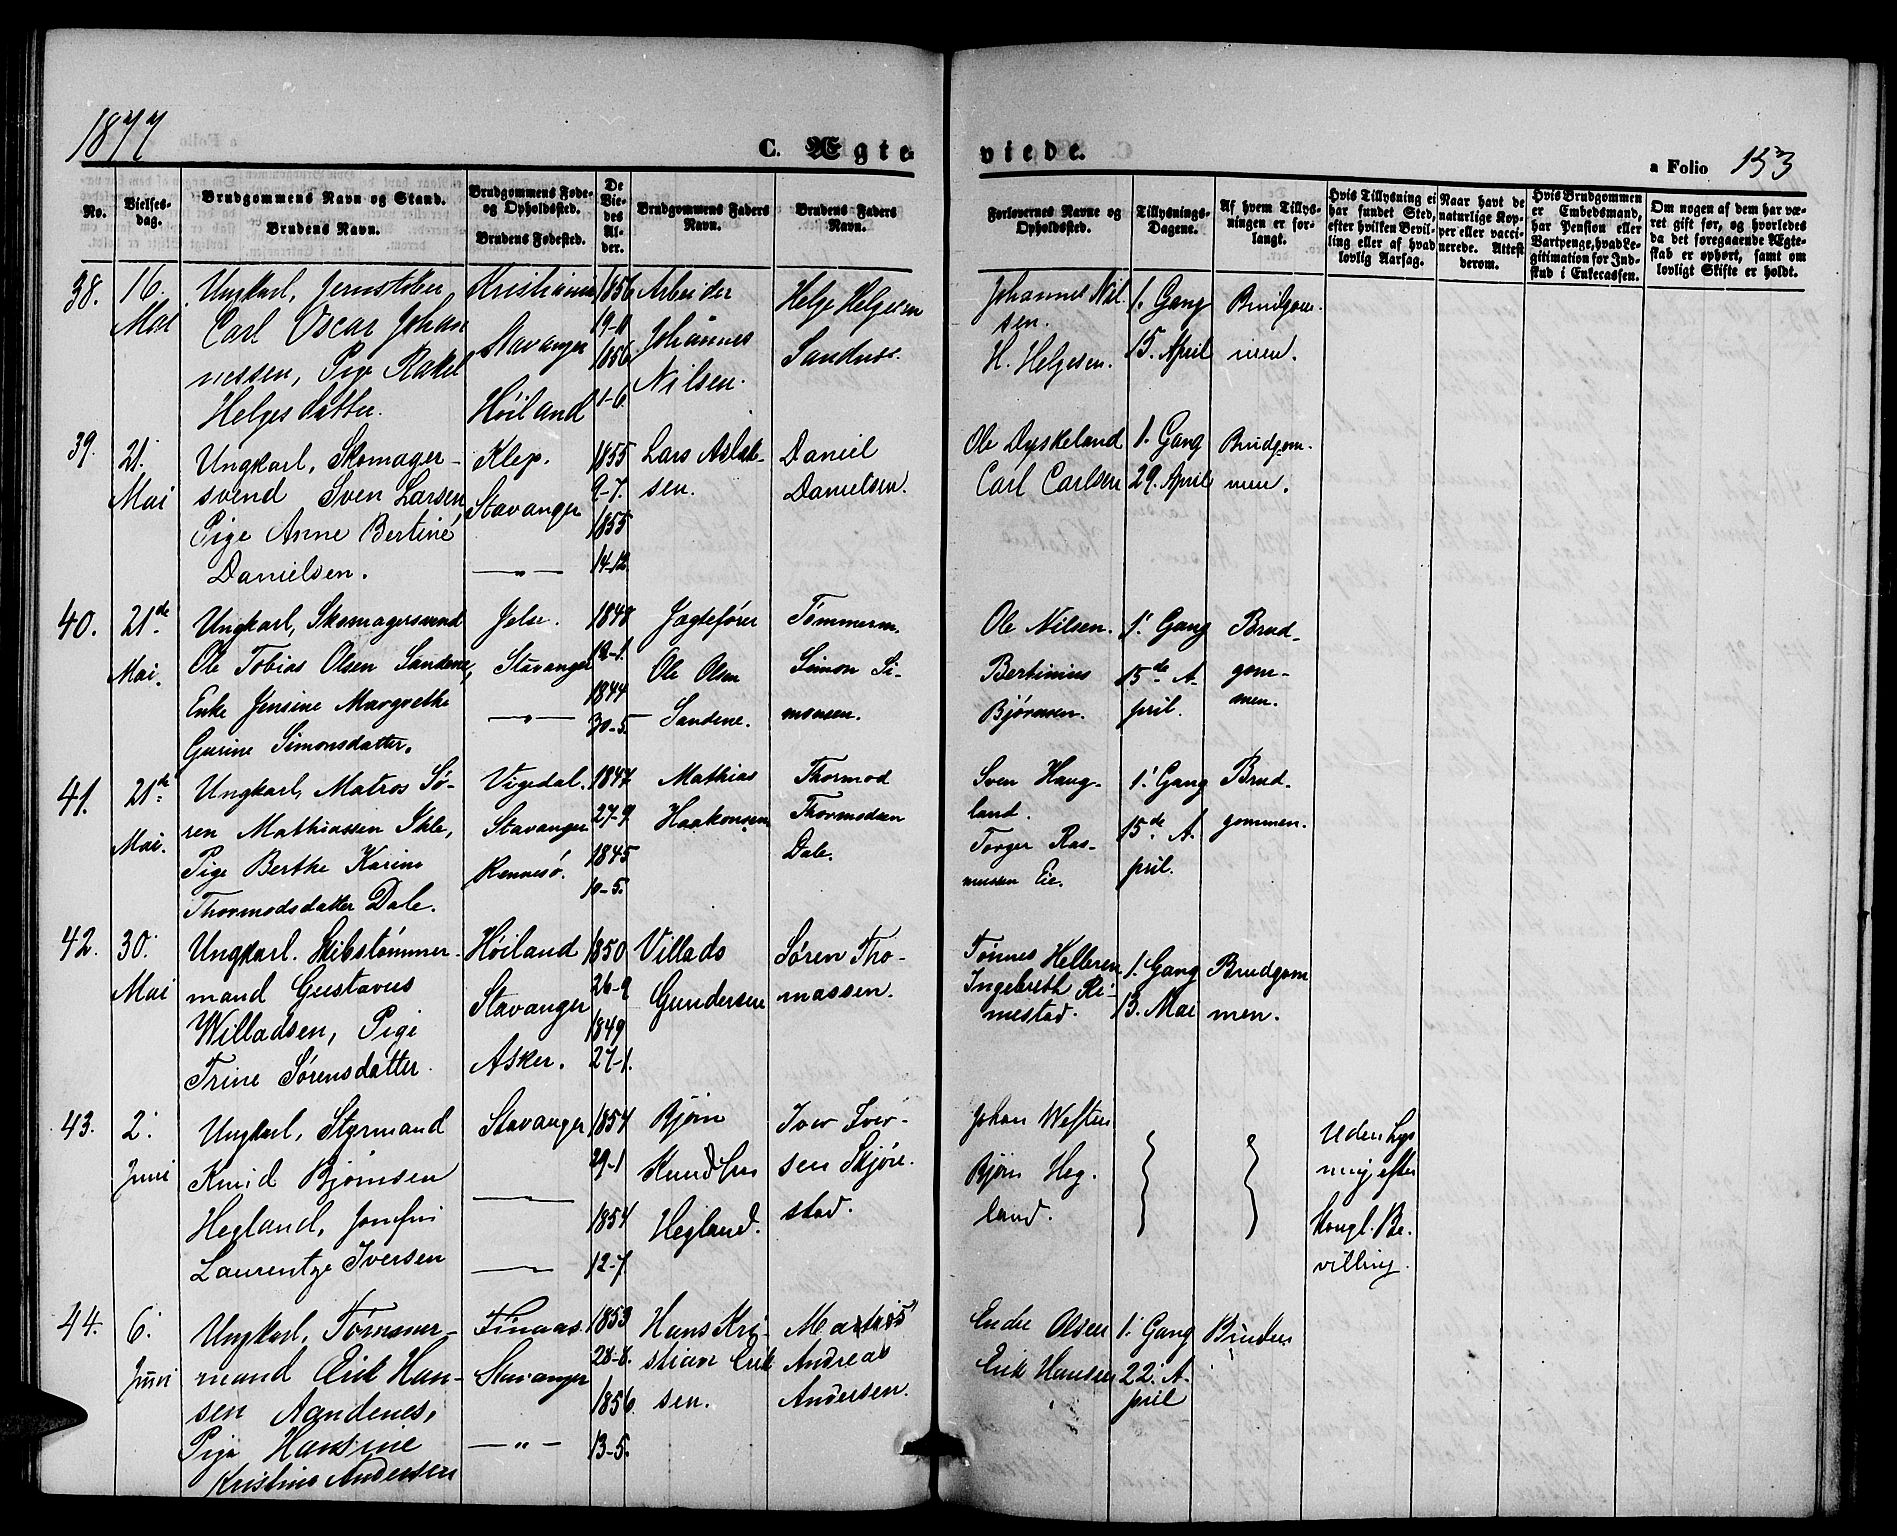 1877
C. Ægte
viede.
a Folio 153
No.
Vielses-
dag.
Brudgommens Navn og Stand.
Brudens Navn.
Brudgommens Føde-
og Opholdssted.
Brudens Fødested.
De
Vie-
des
Al-
der.
Brudgommens Faders
Navn.
Brudens Faders
Navn.
Forlovernes Navne og
Opholdssted.
Tillysnings-
Dagene.
Af hvem Tillys-
ningen er for-
langt.
Hvis Tillysning ei
har fundet Sted,
efter hvilken Bevil-
ling eller af hvad
lovlig Aarsag.
Naar havt de
naturlige Kop-
per eller vacci-
nerede. Attest
derom.
Hvis Brudgommen
er Embedsmand,
har Pension eller
Vartpenge, hvad Le-
gitimation for Ind-
skud i Enkecassen.
Om nogen af dem har væ-
ret gift før, og hvorledes
da det foregaaende Ægte-
skab er ophørt, samt om
lovligt Skifte er holdt.
38.
16.
Mai
Ungkarl,
Carl Oscar Johan
nessen, Pige Rakel
Helgesdatter.
Kristiania
Stavanger
Høiland
1856
19-11
1856
1-6
Arbeider
Johannes
Nilsen.
Helge Helgesen
Sandnes.
Johannes Nil-
sen.
H. Helgesen.
1. Gang
15. April
Brudgom-
men.
39.
21.
Mai
Ungkarl, Skomager-
svend Sven Larsen
Pige Anne Bertine
Danielsen.
Klep.
Stavanger
—„—
1855
9-7.
1855
14-12
Lars Aslak-
sen.
Daniel
Danielsen.
Ole Dyskeland
Carl Carlsen
1. Gang
29. April
Brudgom-
men.
40.
21de
Mai.
Ungkarl, Skomagersvend
Ole Tobias Olsen Sandene,
Enke Jensine Margrethe
Gurine Simonsdatter.
Jelse.
Stavanger
—„—
1848
12-1.
1844
30-5.
Jagtefører
Ole Olsen
Sandene.
Tømmerm.
Simon Si-
monsen.
Ole Nilsen.
Bertinius
Bjørnsen.
1. Gang
15de A-
pril.
Brud-
gom-
men.
41.
21de
Mai.
Ungkarl, Matros Sø-
ren Mathiassen Ikle,
Pige Berthe Karine
Thormodsdatter Dale.
Vigedal.
Stavanger
Rennesø.
1847
27-9
1845
10-5.
Mathias
Haakonsen
Thormod
Thormodsen
Dale.
Sven Haug-
land.
Torger Ras-
mussen Eie.
1. Gang
15de A-
pril.
Brud-
gommen.
42.
30.
Mai
Ungkarl. Skibstømmer-
mand Gustavus
Willadsen, Pige
Trine Sørensdatter
Høiland
Stavanger
Asker.
1850
26-9
1849
27-1.
Villads
Gundersen
Søren Tho-
massen.
Tønnes Helleren
Ingebreth Ri-
mestad.
1. Gang
13. Mai
Brudgom
men.
43.
2.
Juni
Ungkarl, Styrmand
Knud Bjørnsen
Hegland, Jomfru
Laurentze Iversen
Stavanger
1854
29-1
1854
12-7
Bjørn
Knudsen
Hegland.
Iver Iver-
sen Skjøre-
stad.
Johan
Bjørn Heg-
land.
Uden Lys
ning efter
Kongl. Be-
villing.
44.
6.
Juni
Ungkarl, Tømmer-
mand Erik Han-
sen Aandenes,
Pige Hansine
Kristine Andersen
Finaas.
Stavanger
—„—
1853
28-8.
1856.
13-5.
Hans Kri-
stian Erik
sen.
Martus
Andreas
Andersen.
Endre Olsen
Erik Hansen
1. Gang
22. A-
pril
Bruden